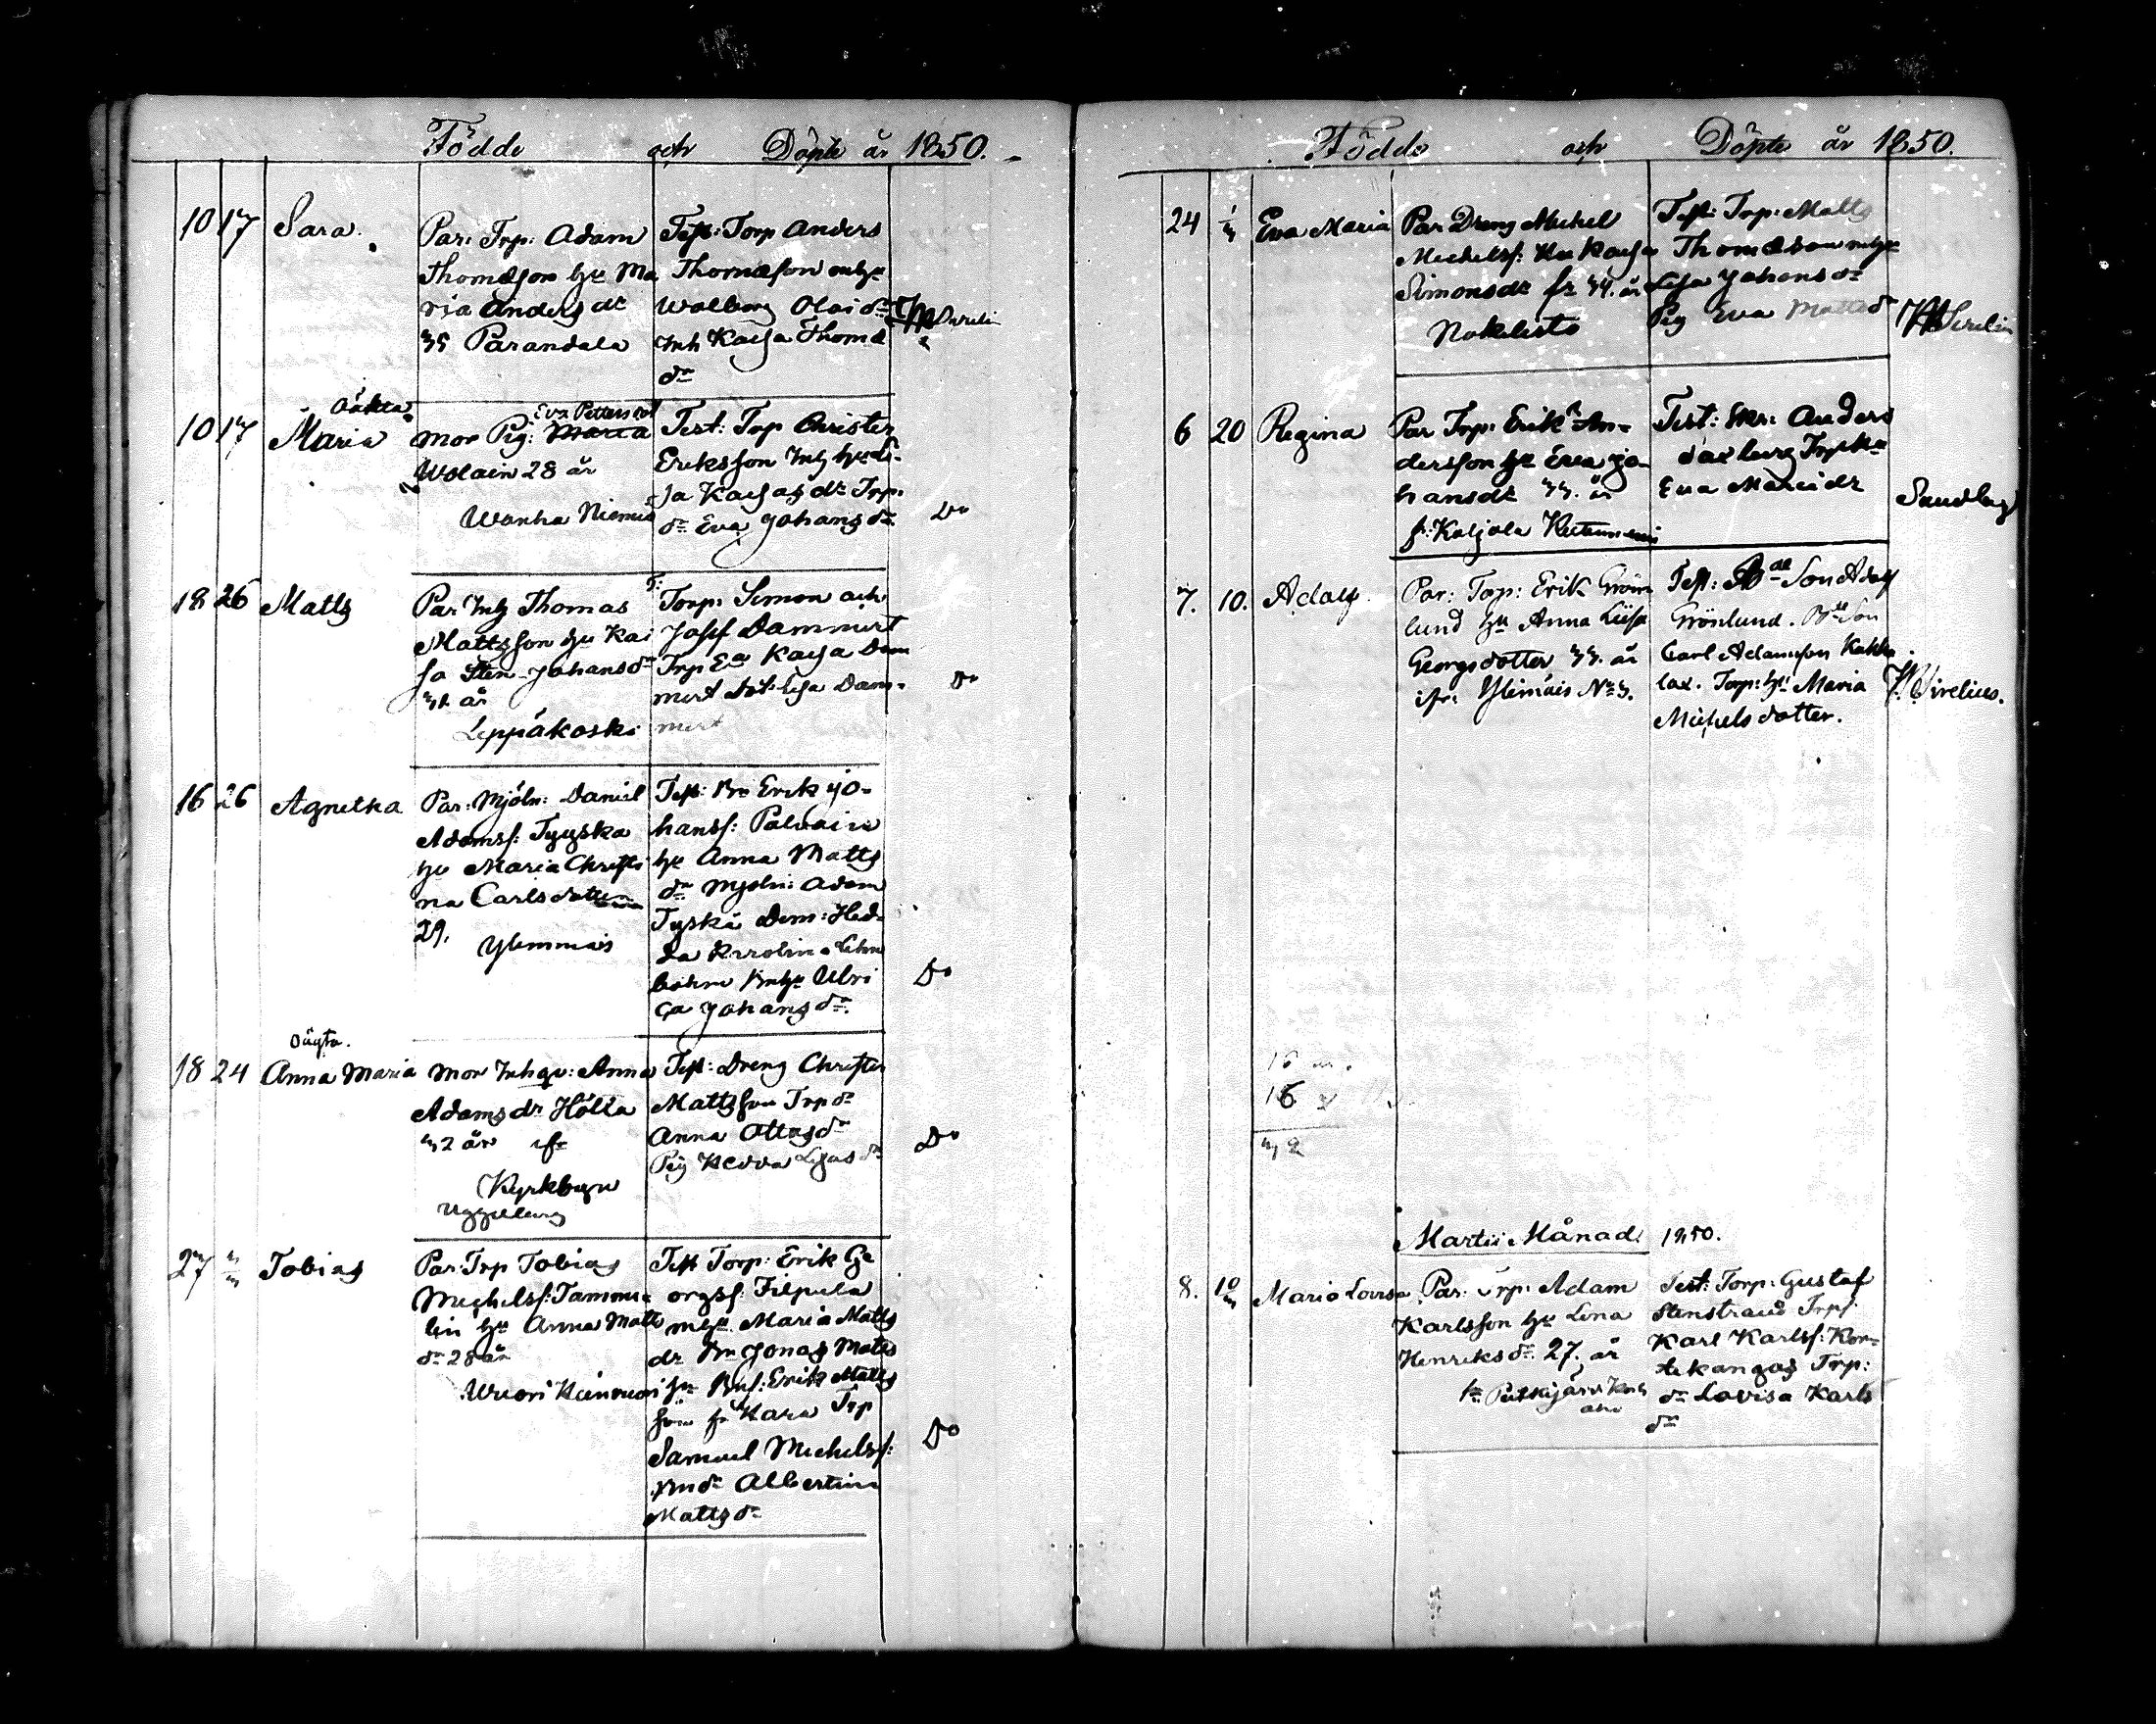 Födde och Döpte år 1850.
10 17 Sara.
Par: Trp: Adam
Thomæson hu Ma
ria Anders dr
35 Parandala
Test: Torp Anders
Thomæson m hu
Walborg Olai dr
Inh Kaisa Thomæ
dr
10 17 Oäkta Maria
Eva Petters dr
mor Pig: Maria
Wolain 28 år
Wanha Niemis
Test: Trp Christer
Eriksson Inh hu Li-
sa Kaisas dr Trp.
dr Eva Johans dr
Do
18 26 Matts
Par Inh Thomas
Mattsson hu Kai
sa Sten Johans dr
31 år
Leppäkoski
T: Torp: Simon och
Josef Dammert
Trp Ea Kaisa Dam
mert dot: Lisa Dam-
mert
Do
16 26 Agnetha
Par: Mjöln: Daniel
Adamss: Tyyska
hu Maria Christi
na Carlsdotter
29.
Ylemmäis
Test: Bn Erik Jo-
hanss: Palvain
hu Anna Matts
dr Mjöln: Adam
Tyskä Dem: Hed-
da Karolina Lehn
bohm Bn hu Ulri
ca Johans dr
Do
18 24 Oägta. Anna Maria
mor Inhqv: Anna
Adams dr Hölta
32 år ifr
Kyrkbyn
Test: Dreng Christer
Mattsson Trp dr
Anna Ottos dr
Pig Hedda Lisas dr
Do
27 3/3 Tobias
Par: Trp Tobias
Michelss: Tamme
lin hu Anna Matts
dr 28 år
Wuori
Test Torp: Erik Ge
orgss: Filpula
m hu Maria Matts
dr Bn Jonas Matts
hu Bns: Erik Matts
son fr Kara Trp
Samuel Michelss:
Bndr Albertina
Matts dr
Do
Födde och Döpte år 1850.
24 1/3 Eva Maria
Par Dreng Michel
Michelss: Hu Kaisa
Simonsdr fr 34. år
Nokelisto
Test: Trp: Matts
Thomæson m hu
Lisa Johans dr
Pig Eva Matts dr
6 20 Regina
Par Trp: Erik An-
dersson hu Eva Jo-
hansdr 33. år
fr: Koljola
Test: Anders
Eva
7. 10. Adolf.
Par: Torp: Erik Grön
lund hu Anna Liisa
Georgsdotter 33. år
ifr: Ylimäis No 3.
Test: Bde Son Adolf
Grönlund. Bde Son
Carl Adamsson Kakko
lax. Torp: hu Maria
Michelsdotter.
W. Sirelius.
16
16
32
Martii Månad 1850.
8. 10/3 Maria Lovisa
Par: Trp: Adam
Karlsson hu Lena
Henriks dr 27. år
Test: Torp: Gustaf
Stenstrand Trps:
Karl Karlss: Kor-
tekangas Trp:
dr Lovisa Karls
dr